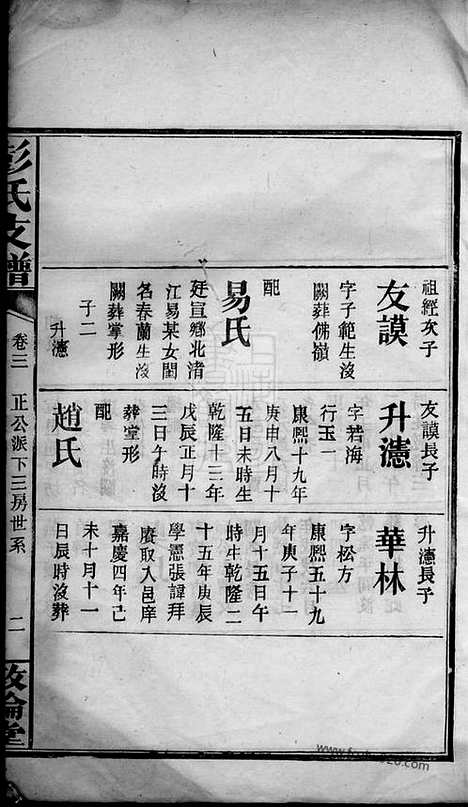 祖經次子
友謨
字子範生沒
關葬佛嶺
配
易氏
廷宣鄉北清
江易某女閨
名春蘭生沒
闕葬掌形
子二
升𤅀
友謨長子
升𤅀
字若海
行玉一
康熙十九年
庚申八月十
五日未時生
乾隆十三年
戊辰正月十
三日午時沒
葬堂形
配
趙氏
升𤅀長子
華林
字松方
康熙五十九
年庚子十一
月十五日午
時生乾隆二
十五年庚辰
學憲張諱拜
賡取入邑庠
嘉慶四年己
未十月十一
日辰時沒葬
彭氏支譜
卷三
正公派下三房世系
二
敘倫堂